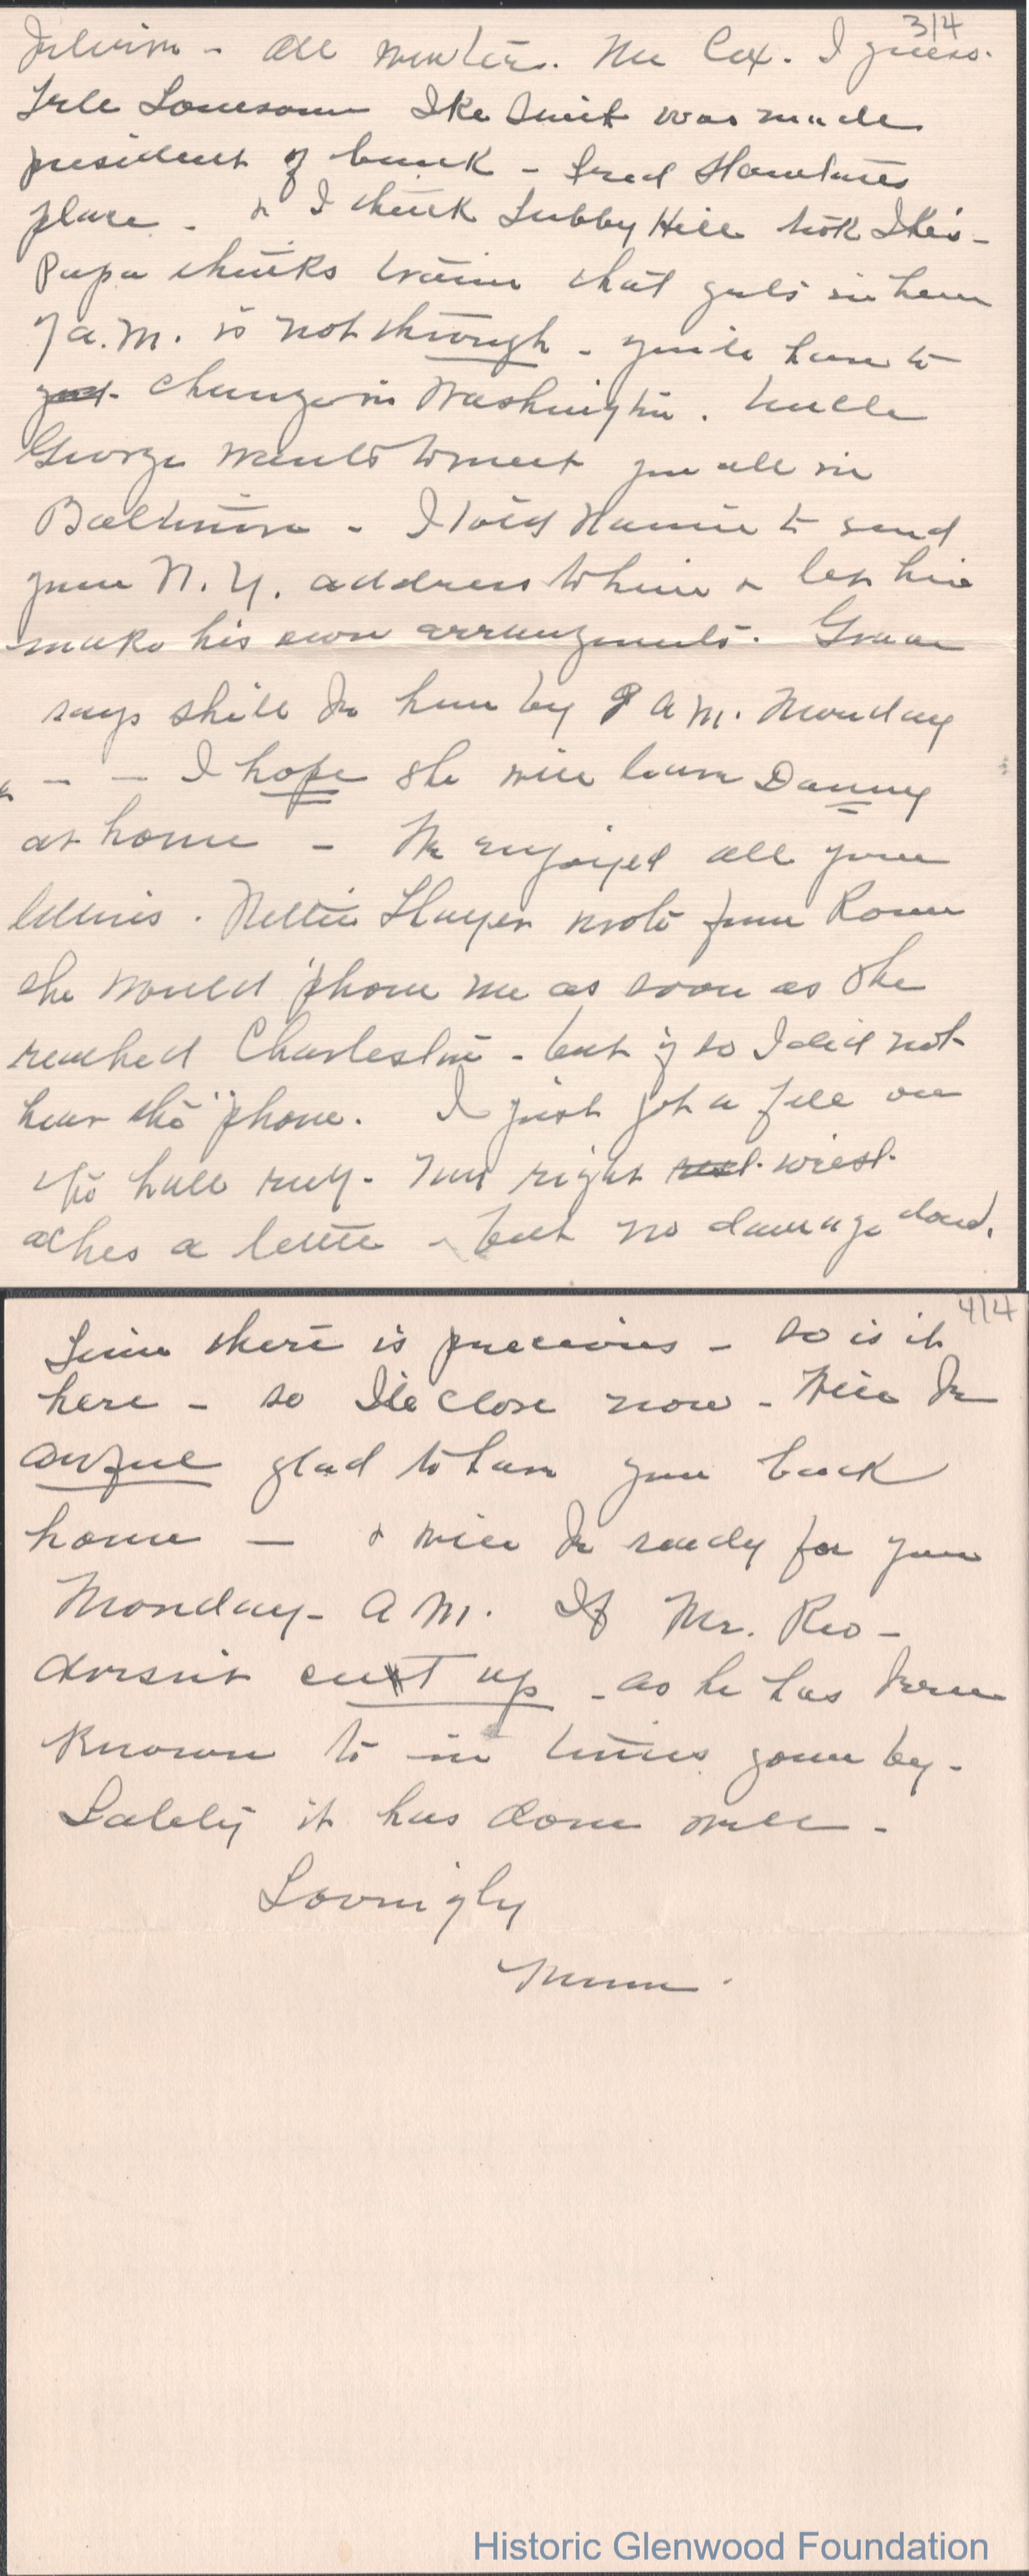 3/4
- all winter. Mr Cox. I guess.
Lonesome Ike Smit was made
president of bank - Fred
place - & I think Tubby Hill took Ike's -
Papa thinks train that gets in here
7 a.m. is not through - you'll have to
change in Washington. Uncle
George wants to meet you all in
Baltimore - I told Nannie to send
your N.Y. address to him & let him
make his own arrangements. Grace
says she'll be here by 8 A M. Monday
- - I hope she will leave Danny
at home - We enjoyed all your
letters. Nettie Thayer wrote from Rome
she would 'phone me as soon as she
reached Charleston - but if so I did not
hear the 'phone. I just got a fall on
the hall rug. My right wrist
aches a little - but no damage done.
4/4
Time there is precious - so is it
here - so I'll close now - Will be
awful glad to have you back
home - & will be ready for you
Monday - A M. If Mr. Rio -
doesn't cut up - as he has been
known to in times gone by -
Lately it has done well -
Lovingly
Mum.
Historic Glenwood Foundation